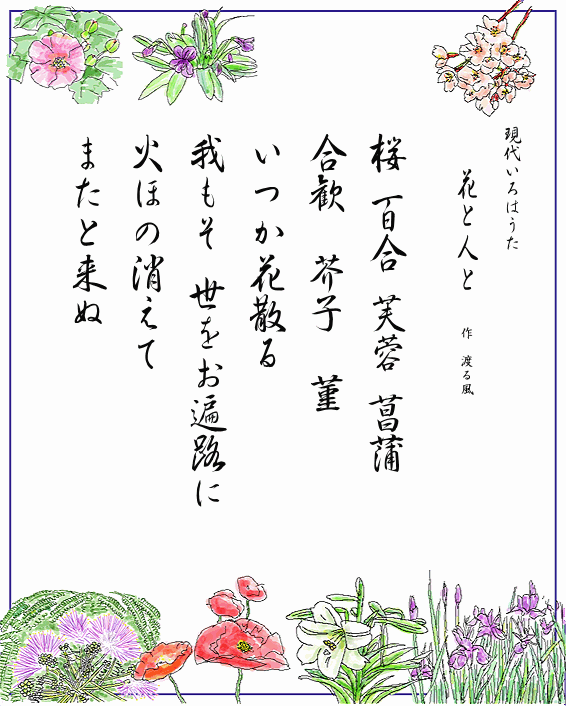 現代いろはうた
花と人と
作 渡る風
桜 百合 芙蓉 菖蒲
合歓 芥子 菫
いつか花散る
我もそ 世をお遍路に
火ほの消えて
またと来ぬ